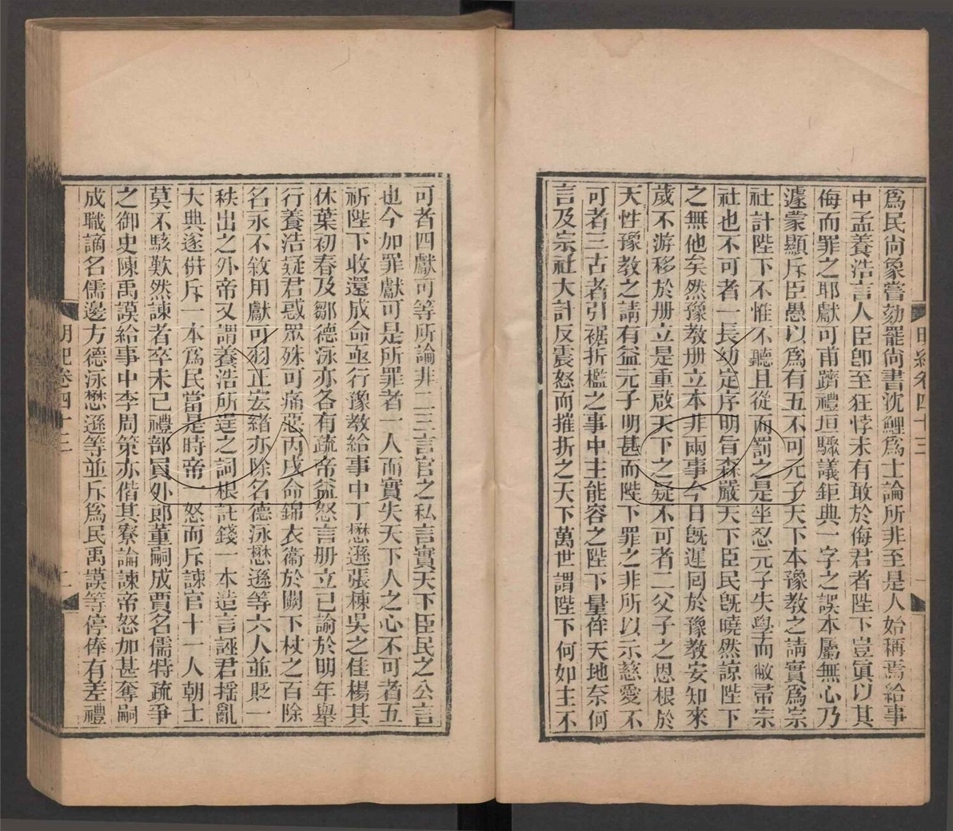 爲民尚象嘗劾罷尚書沈鯉爲士論所非至是人始稱焉給事
中孟養浩言人臣卽至狂悖未有敢於侮君者陛下豈眞以其
侮而罪之耶獻可甫躋禮垣驟議鉅典一字之誤本屬無心乃
遽蒙顯斥臣愚以爲有五不可元子天下本豫教之請實爲宗
社計陛下不惟不聽且從而罰之是坐忍元子失學而敝帚宗
社也不可者一長幼定序明旨森嚴天下臣民旣曉然諒陛下
之無他矣然豫教册立本非兩事今日旣遲囘於豫教安知來
歲不游移於册立是重啟天下之疑不可者二父子之恩根於
天性豫教之請有益元子明甚而陛下罪之非所以示慈愛不
可者三古者引裾折檻之事中主能容之陛下量侔天地奈何
言及宗社大計反震怒而摧折之天下萬世謂陛下何如主不
可者四獻可等所論非二三言官之私言實天下臣民之公言
也今加罪獻可是所罪者一人而實失天下人之心不可者五
祈陛下收還成命亟行豫教給事中丁懋遜張棟吳之佳楊其
休葉初春及鄒德泳亦各有疏帝益怒言册立已諭於明年舉
行養浩疑君惑眾殊可痛惡丙戌命錦衣衞於闕下杖之百除
名永不敘用獻可羽正宏緒亦除名德泳懋遜等六人並貶一
秩出之外帝又謂養浩所逞之詞根託錢一本造言誣君搖亂
大典遂併斥一本爲民當是時帝一怒而斥諫官十一人朝士
莫不駭歎然諫者卒未已禮部員外郎董嗣成賈名儒特疏爭
之御史陳禹謨給事中李周策亦偕其寮論諫帝怒加甚奪嗣
成職謫名儒邊方德泳懋遜等並斥爲民禹謨等停俸有差禮
明紀卷四十三